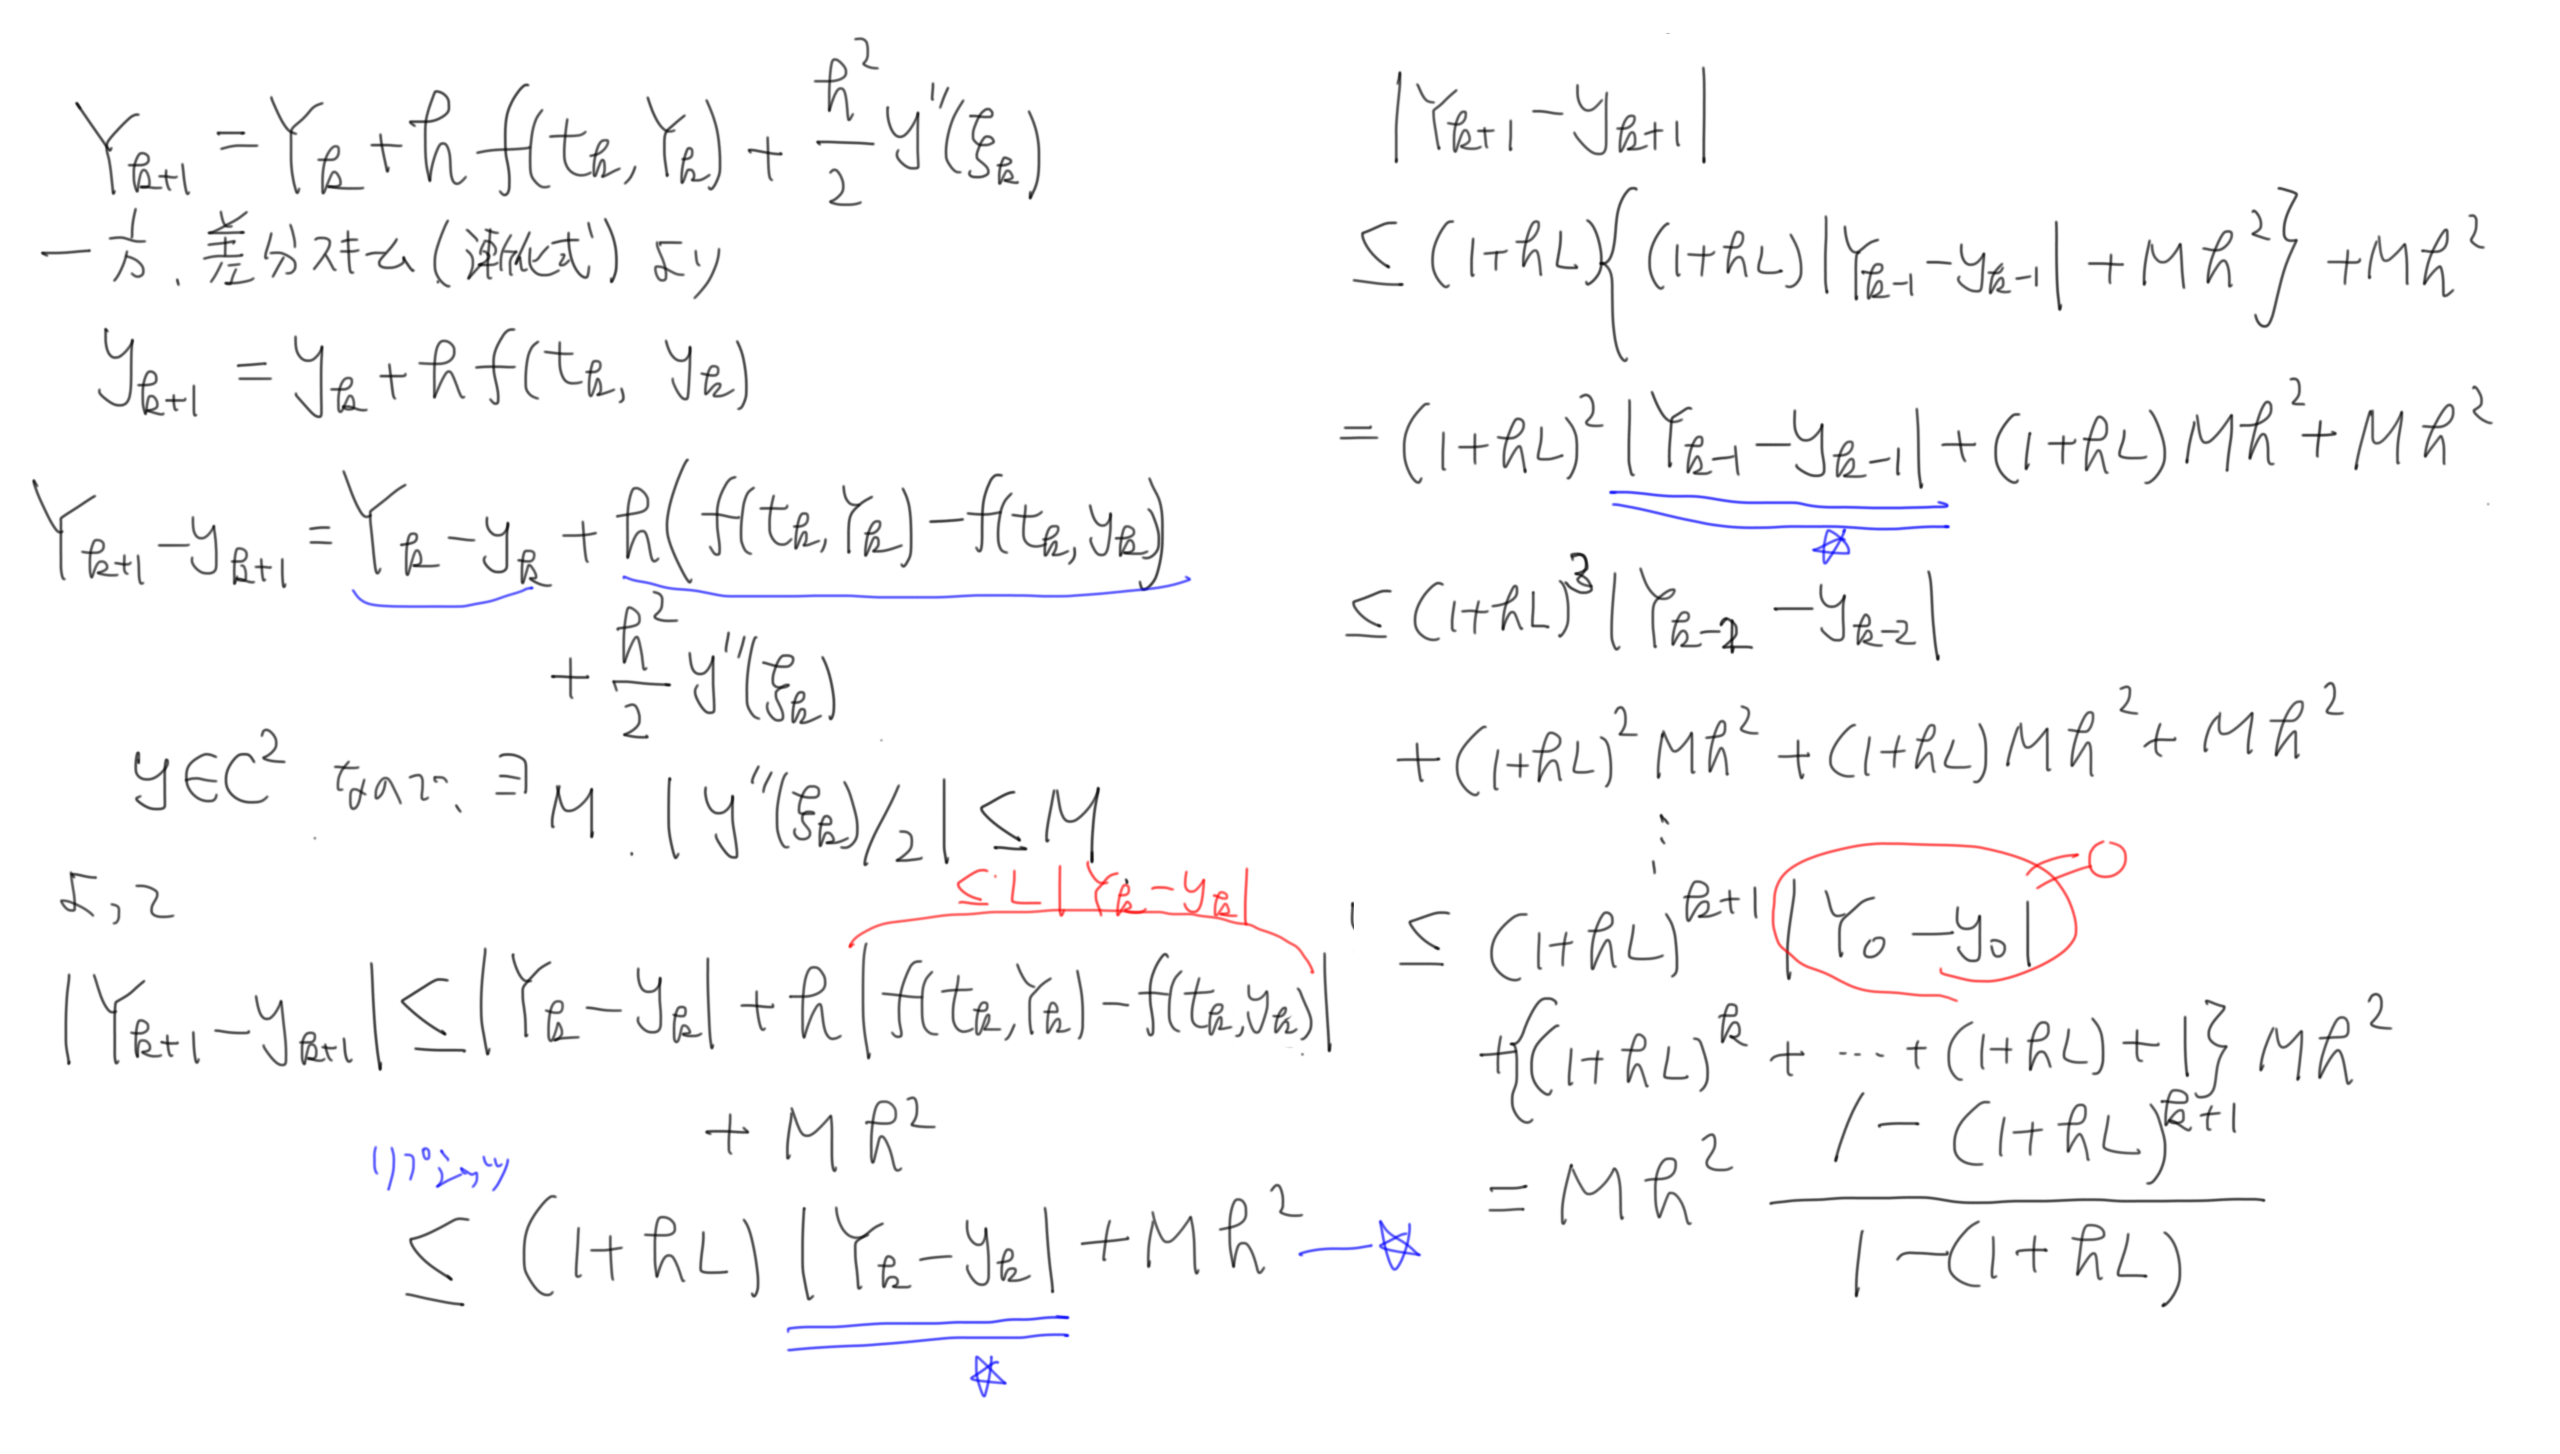 Y_{k+1} = Y_k + h f(t_k, Y_k) + h²/2 y''(ξ_k)
一方、差分スキーム(漸化式)より
y_{k+1} = y_k + h f(t_k, y_k)
Y_{k+1} - y_{k+1} = Y_k - y_k + h(f(t_k, Y_k) - f(t_k, y_k))
+ h²/2 y''(ξ_k)
y ∈ C² なので、 ∃M . |y''(ξ_k)/2| ≤ M
よって
≤ L|Y_k - y_k|
|Y_{k+1} - y_{k+1}| ≤ |Y_k - y_k| + h|f(t_k, Y_k) - f(t_k, y_k)|
+ M h²
リプシッツ
≤ (1 + hL) |Y_k - y_k| + M h² — ☆
☆
|Y_{k+1} - y_{k+1}|
≤ (1 + hL){(1 + hL)|Y_{k-1} - y_{k-1}| + M h²} + M h²
= (1 + hL)² |Y_{k-1} - y_{k-1}| + (1 + hL) M h² + M h²
☆
≤ (1 + hL)³ |Y_{k-2} - y_{k-2}|
+ (1 + hL)² M h² + (1 + hL) M h² + M h²
⋮
≤ (1 + hL)^{k+1} |Y_0 - y_0| = 0
+ {(1 + hL)^k + ⋯ + (1 + hL) + 1} M h²
= M h² (1 - (1 + hL)^{k+1}) / (1 - (1 + hL))